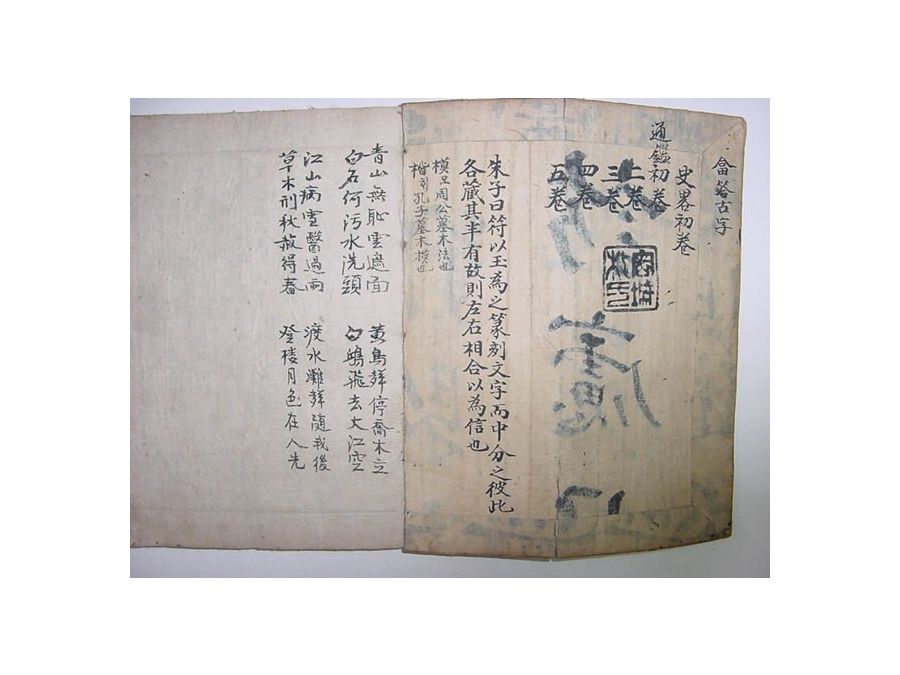 畣答古字
史畧初卷
通鑑初卷
二卷
三卷
四卷
五卷
朱子曰符以玉為之篆刻文字而中分之彼此
各藏其半有故則左右相合以為信也
模卫周公墓木法也
楷 孔子墓木模也
青山無恥雲遮面 黃鳥 停喬木立
白石何污水洗頭 白鷗飛去大江空
江山病雪醫過雨 渡水灘 隨我後
草木刑秋赦得春 登楼月色在人先